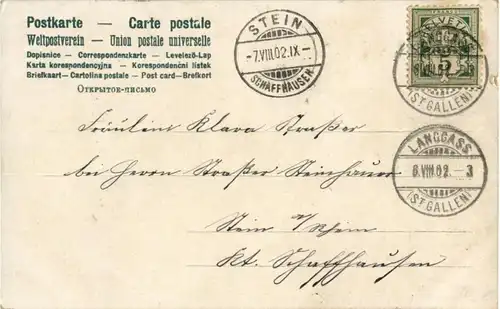 Postkarte — Carte postale
Weltpostverein — Union postale universelle
Dopisnice — Correspondenzkarte — Levelező-Lap
Karta korespondencyjna — Korespondenční listek
Briefkaart — Cartolina postale — Post card — Brefkort
Открытое-письмо
STEIN
-7.VIII.02.IX-
SCHAFFHAUSEN
HELVETIA
LANGGASS
(ST.GALLEN)
LANGGASS
6.VIII.02.-3
(ST.GALLEN)
Fräulein Klara Straßer
bei Herrn Straßer Steinhauer
Stein a/Rhein
Kt. Schaffhausen